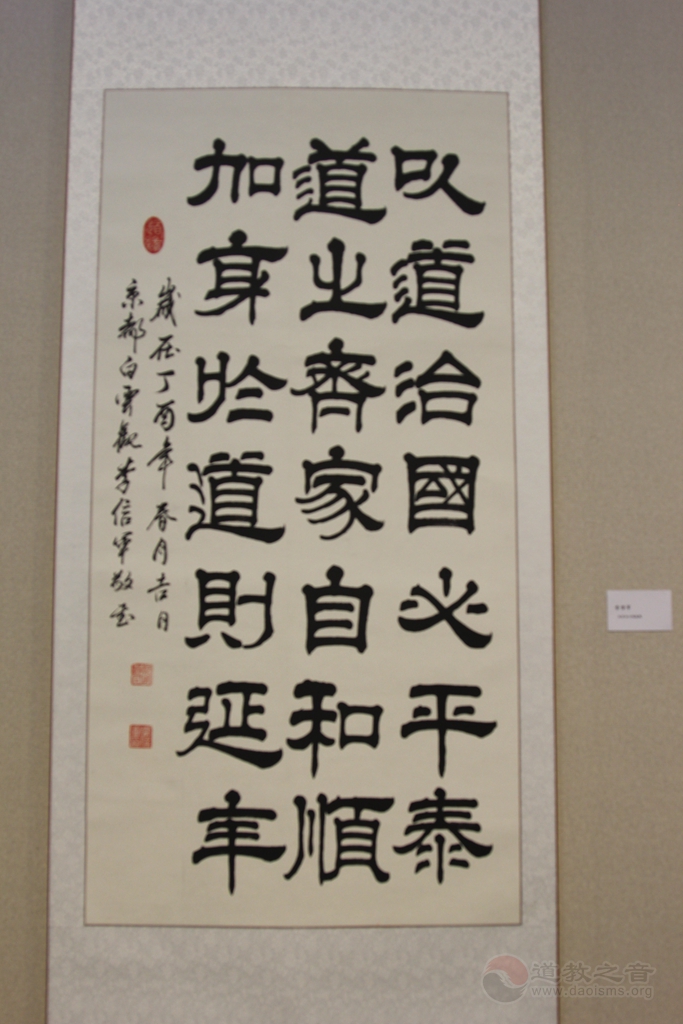 以道治國必平泰
道之齊家自和順
加身於道則延年
歲在丁酉年春月吉日
京都白雲觀李信軍敬書
道教之音
www.daoisms.org